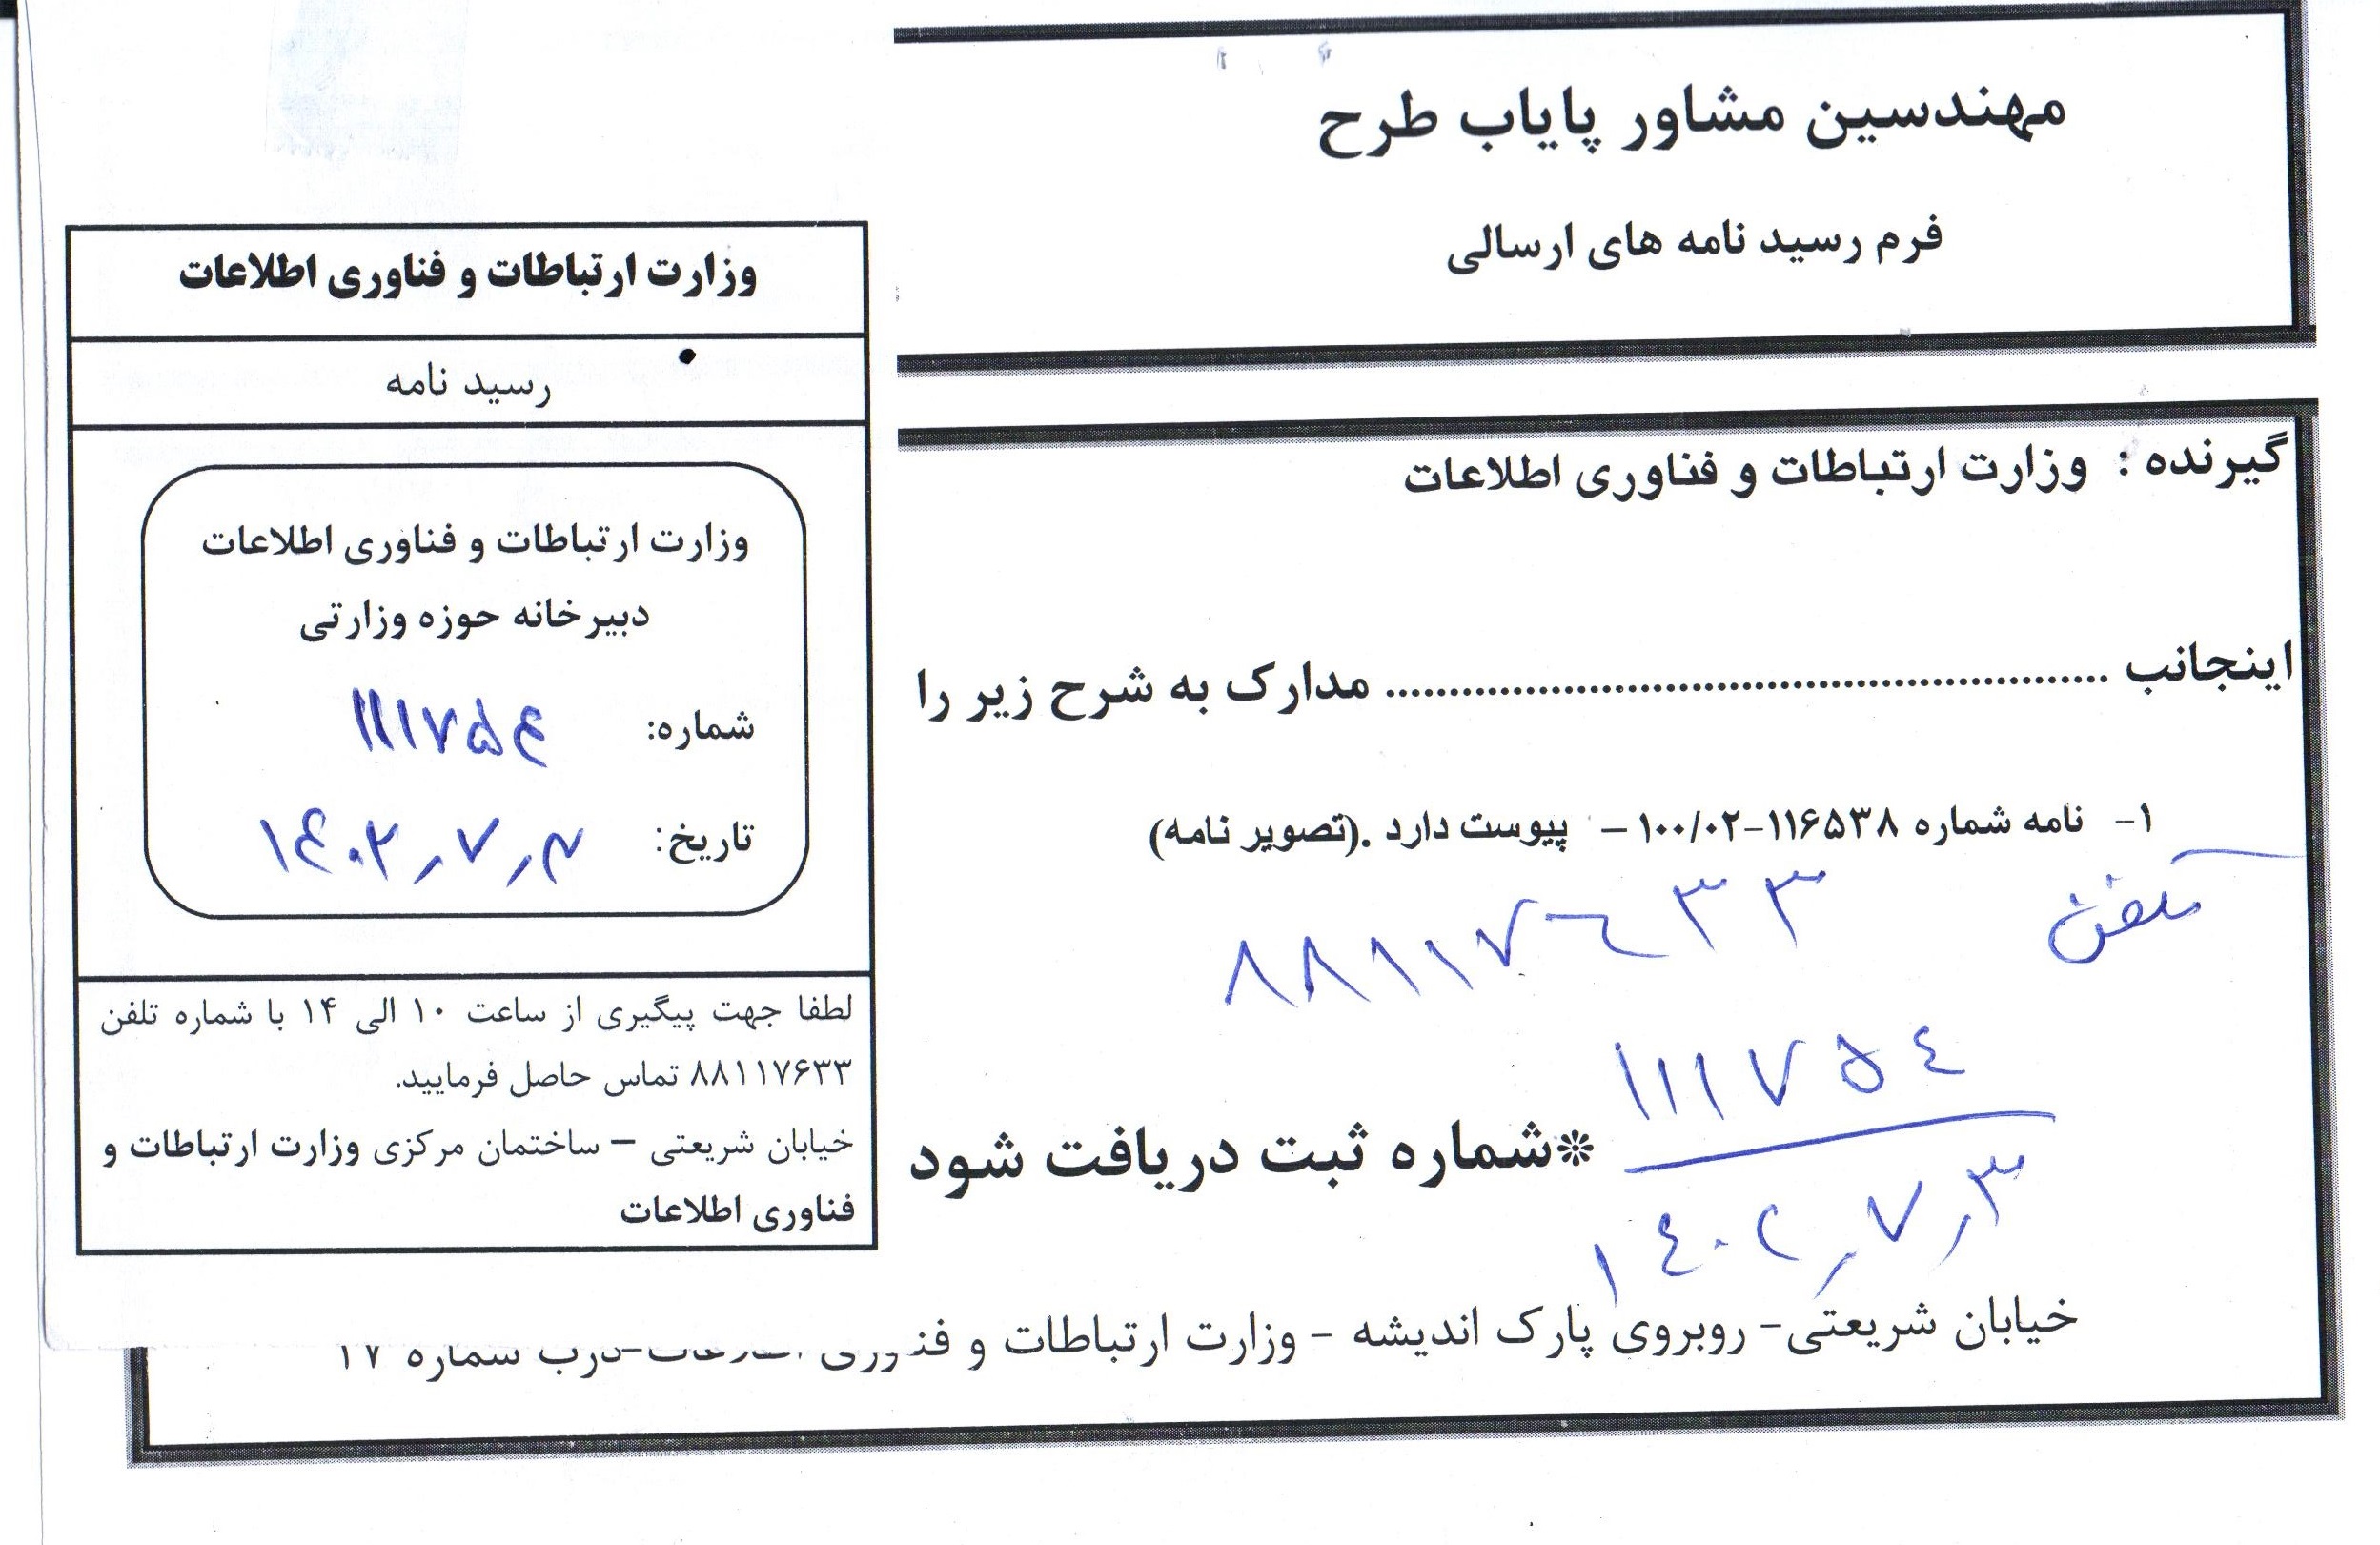 مهندسین مشاور پایاب طرح
فرم رسید نامه های ارسالی
گیرنده : وزارت ارتباطات و فناوری اطلاعات
اینجانب ........................................................ مدارک به شرح زیر را
۱- نامه شماره ۱۱۶۵۳۸-۱۰۰/۰۲ – پیوست دارد .(تصویر نامه)
تلفن ۸۸۱۱۷۶۳۳
۱۱۱۷۵٤
*شماره ثبت دریافت شود
۱٤۰۲٫۷٫۳
خیابان شریعتی- روبروی پارک اندیشه - وزارت ارتباطات و فناوری اطلاعات-درب شماره ۱۷
وزارت ارتباطات و فناوری اطلاعات
رسید نامه
وزارت ارتباطات و فناوری اطلاعات
دبیرخانه حوزه وزارتی
شماره: ۱۱۱۷۵۴
تاریخ: ۱۴۰۲٫۷٫۳
لطفا جهت پیگیری از ساعت ۱۰ الی ۱۴ با شماره تلفن
۸۸۱۱۷۶۳۳ تماس حاصل فرمایید.
خیابان شریعتی – ساختمان مرکزی وزارت ارتباطات و
فناوری اطلاعات